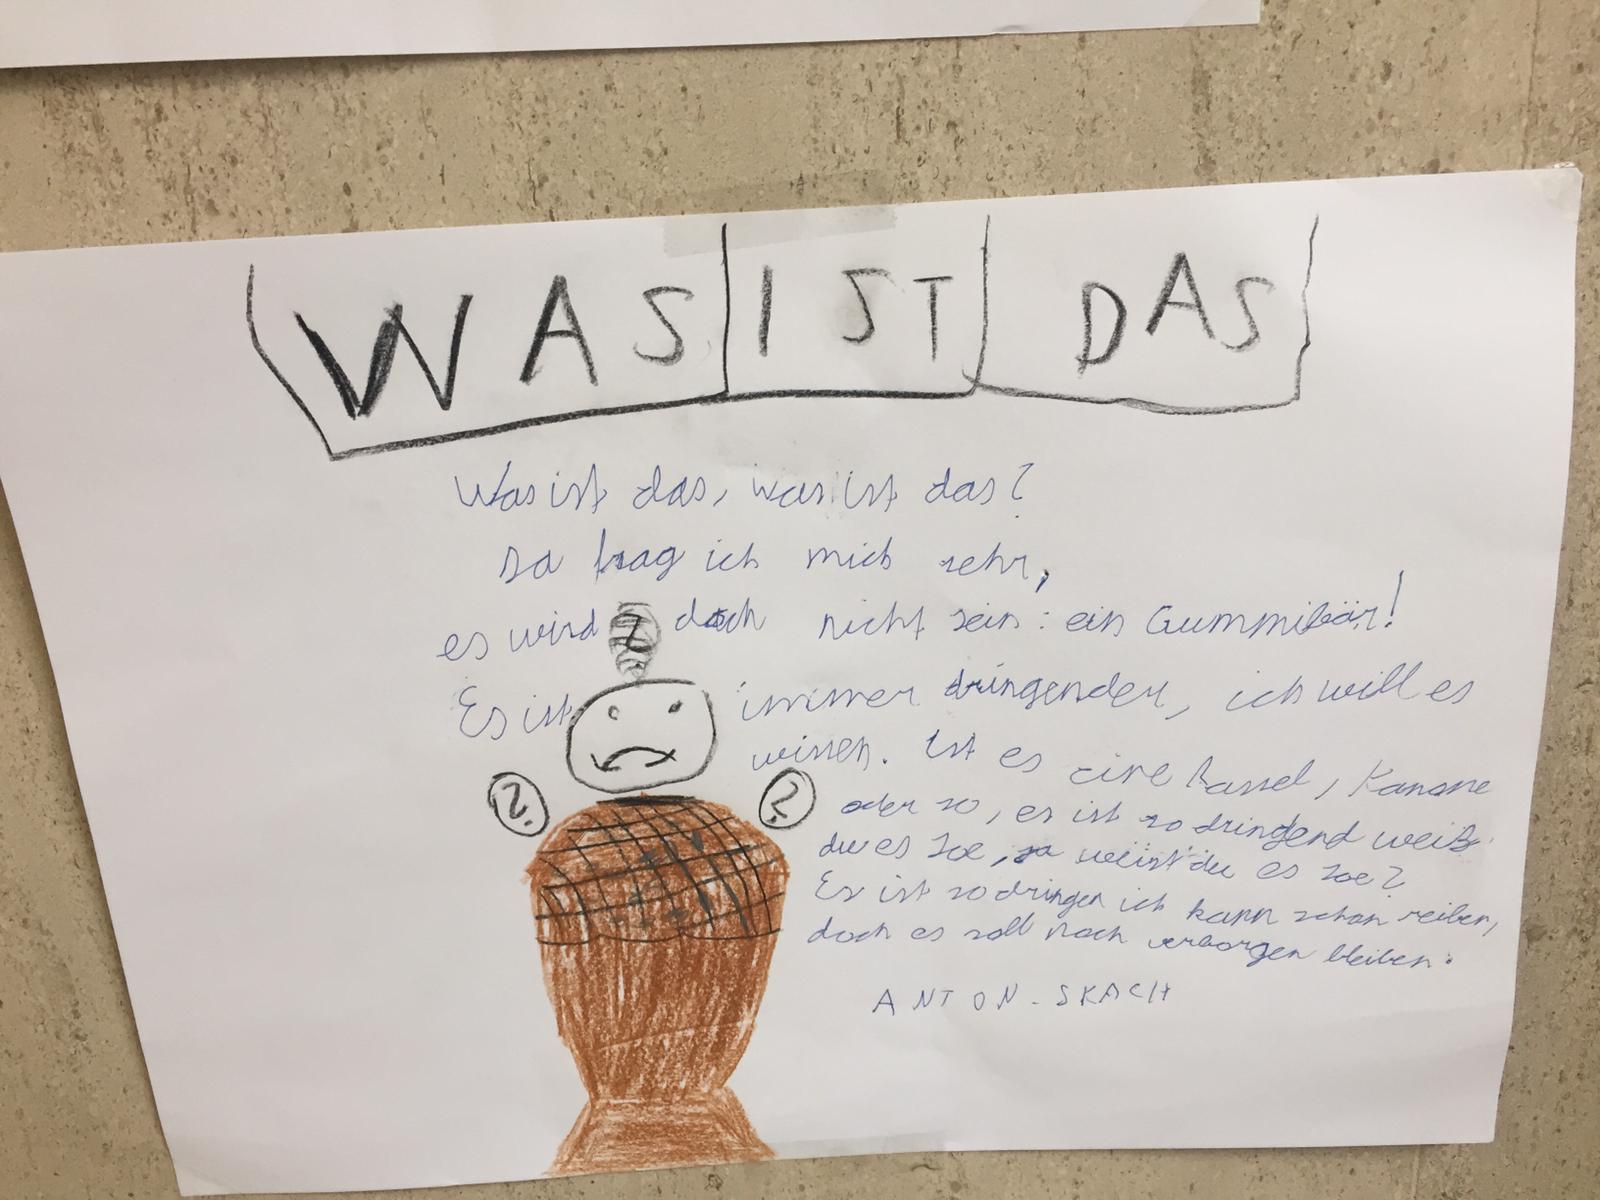 WAS IST DAS
Was ist das, was ist das?
So frag ich mich sehr,
es wird doch nicht sein: ein Gummibär!
Es ist immer dringender, ich will es
wissen. Ist es eine Rassel, Kanone
oder so, es ist so dringend weiß
du es Zoe, weist du es Zoe?
Es ist so dringen ich kann schon reiben,
doch es soll noch verborgen bleiben.
ANTON-SKACH
?
?